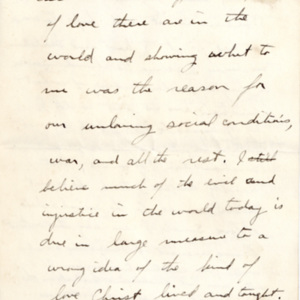 of love there are in the
world and showing what to
me was the reason for
our unloving social conditions,
war, and all the rest. I
believe much of the evil and
injustice in the world today is
due in large measure to a
wrong idea of the kind of
love Christ lived and taught.